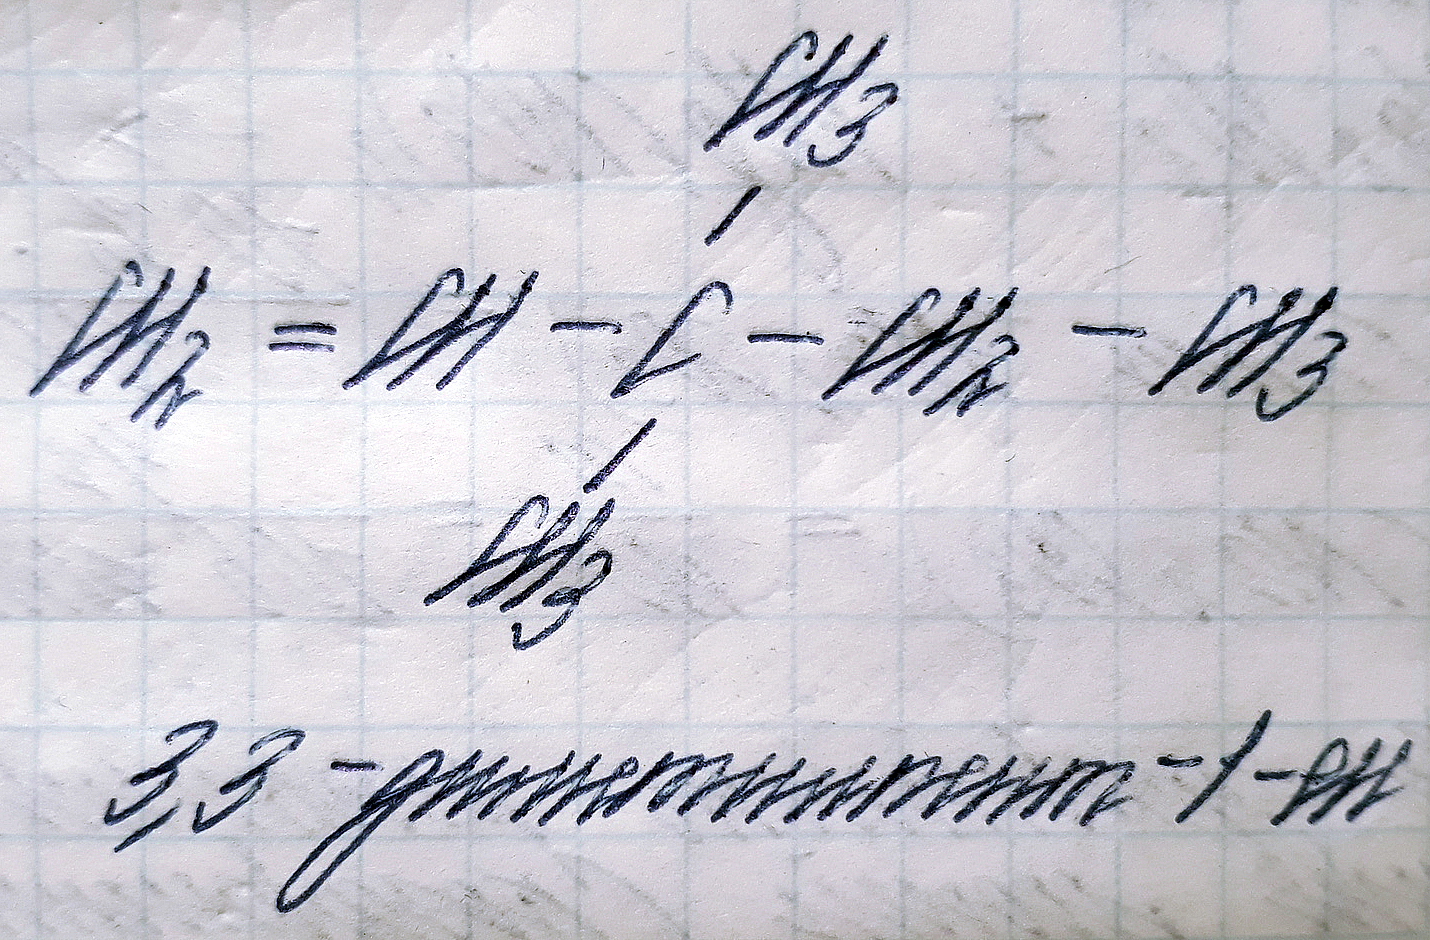 CH3
CH2 = CH – C – CH2 – CH3
CH3
3,3 -диметилпент-1-ен